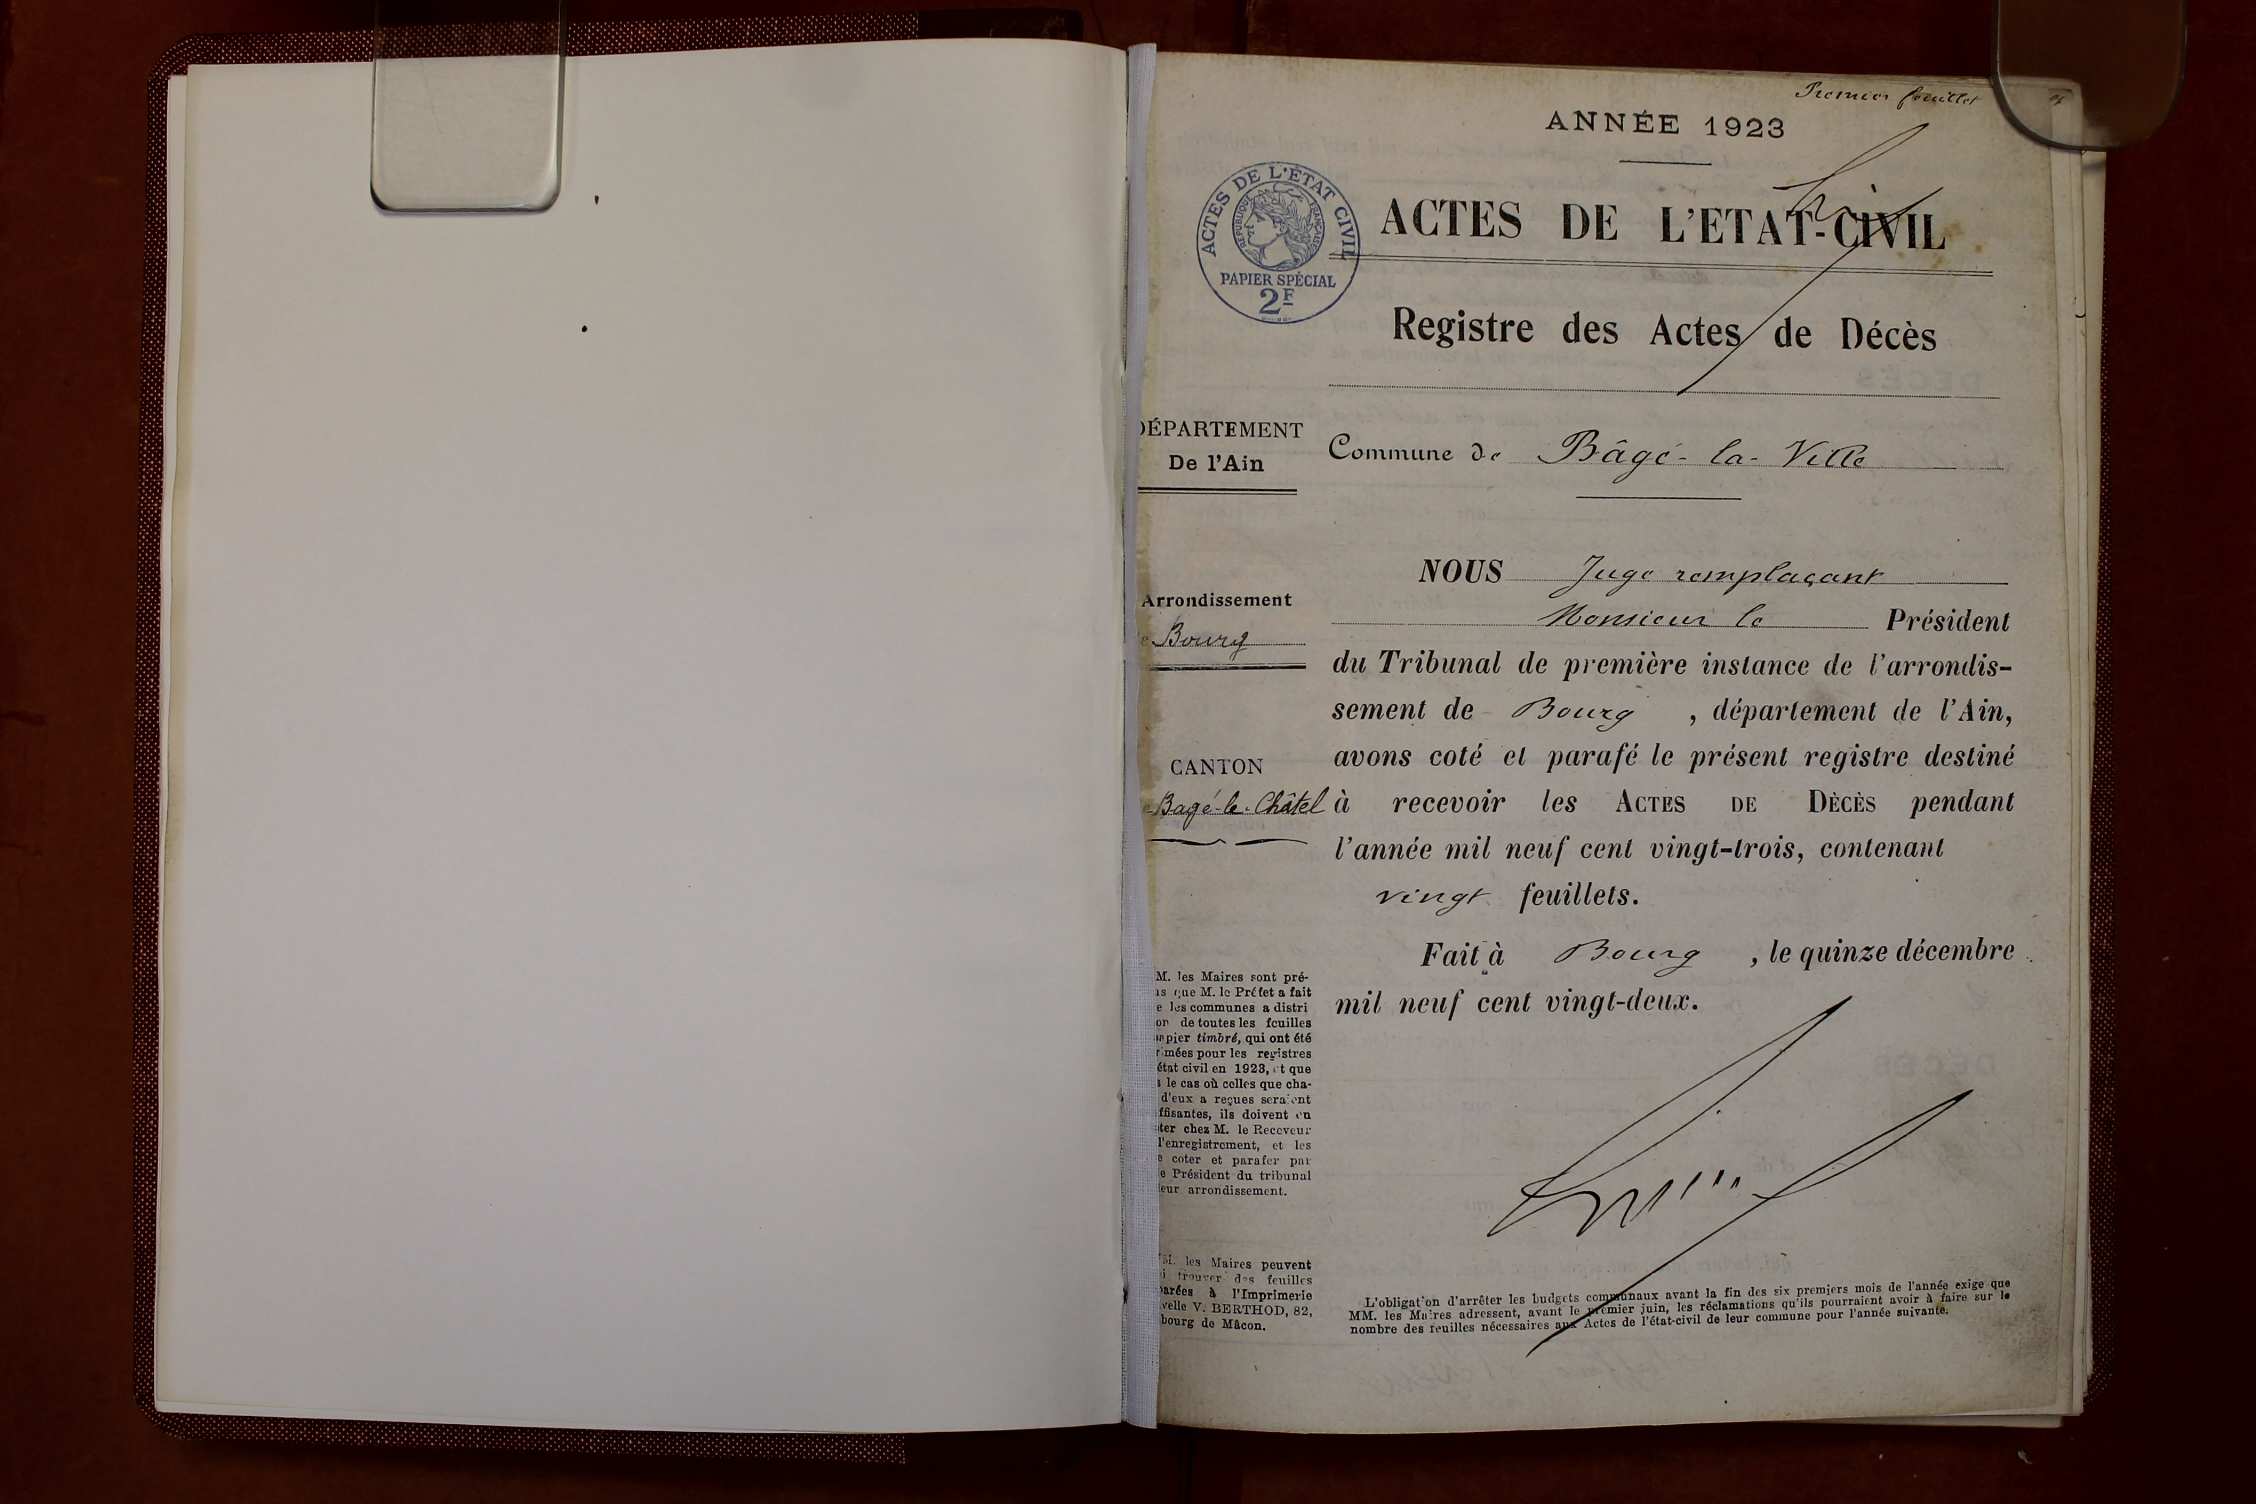 Premier feuillet
ANNÉE 1923
ACTES DE L'ÉTAT CIVIL
RÉPUBLIQUE FRANÇAISE
PAPIER SPÉCIAL
2F
ACTES DE L'ETAT-CIVIL
Registre des Actes de Décès
DÉPARTEMENT
De l'Ain
Commune de Bâgé-la-Ville
Arrondissement
e Bourg
CANTON
e Bagé-le-Châtel
NOUS Juge remplaçant
Monsieur le Président
du Tribunal de première instance de l'arrondis-
sement de Bourg, département de l'Ain,
avons coté et parafé le présent registre destiné
à recevoir les ACTES DE DÈCÈS pendant
l'année mil neuf cent vingt-trois, contenant
vingt feuillets.
Fait à Bourg, le quinze décembre
mil neuf cent vingt-deux.
M. les Maires sont pré-
us que M. le Préfet a fait
e les communes a distri
on de toutes les feuilles
apier timbré, qui ont été
rimées pour les registres
état civil en 1923, et que
s le cas où celles que cha-
d'eux a reçues seraient
ffisantes, ils doivent en
ter chez M. le Receveur
l'enregistrement, et les
e coter et parafer par
e Président du tribunal
eur arrondissement.
M. les Maires peuvent
i trouver des feuilles
parées à l'Imprimerie
velle V. BERTHOD, 82,
bourg de Mâcon.
L'obligation d'arrêter les budgets communaux avant la fin des six premiers mois de l'année exige que
MM. les Maires adressent, avant le premier juin, les réclamations qu'ils pourraient avoir à faire sur le
nombre des feuilles nécessaires aux Actes de l'état-civil de leur commune pour l'année suivante.
DÉCÈS
DÉCÈS